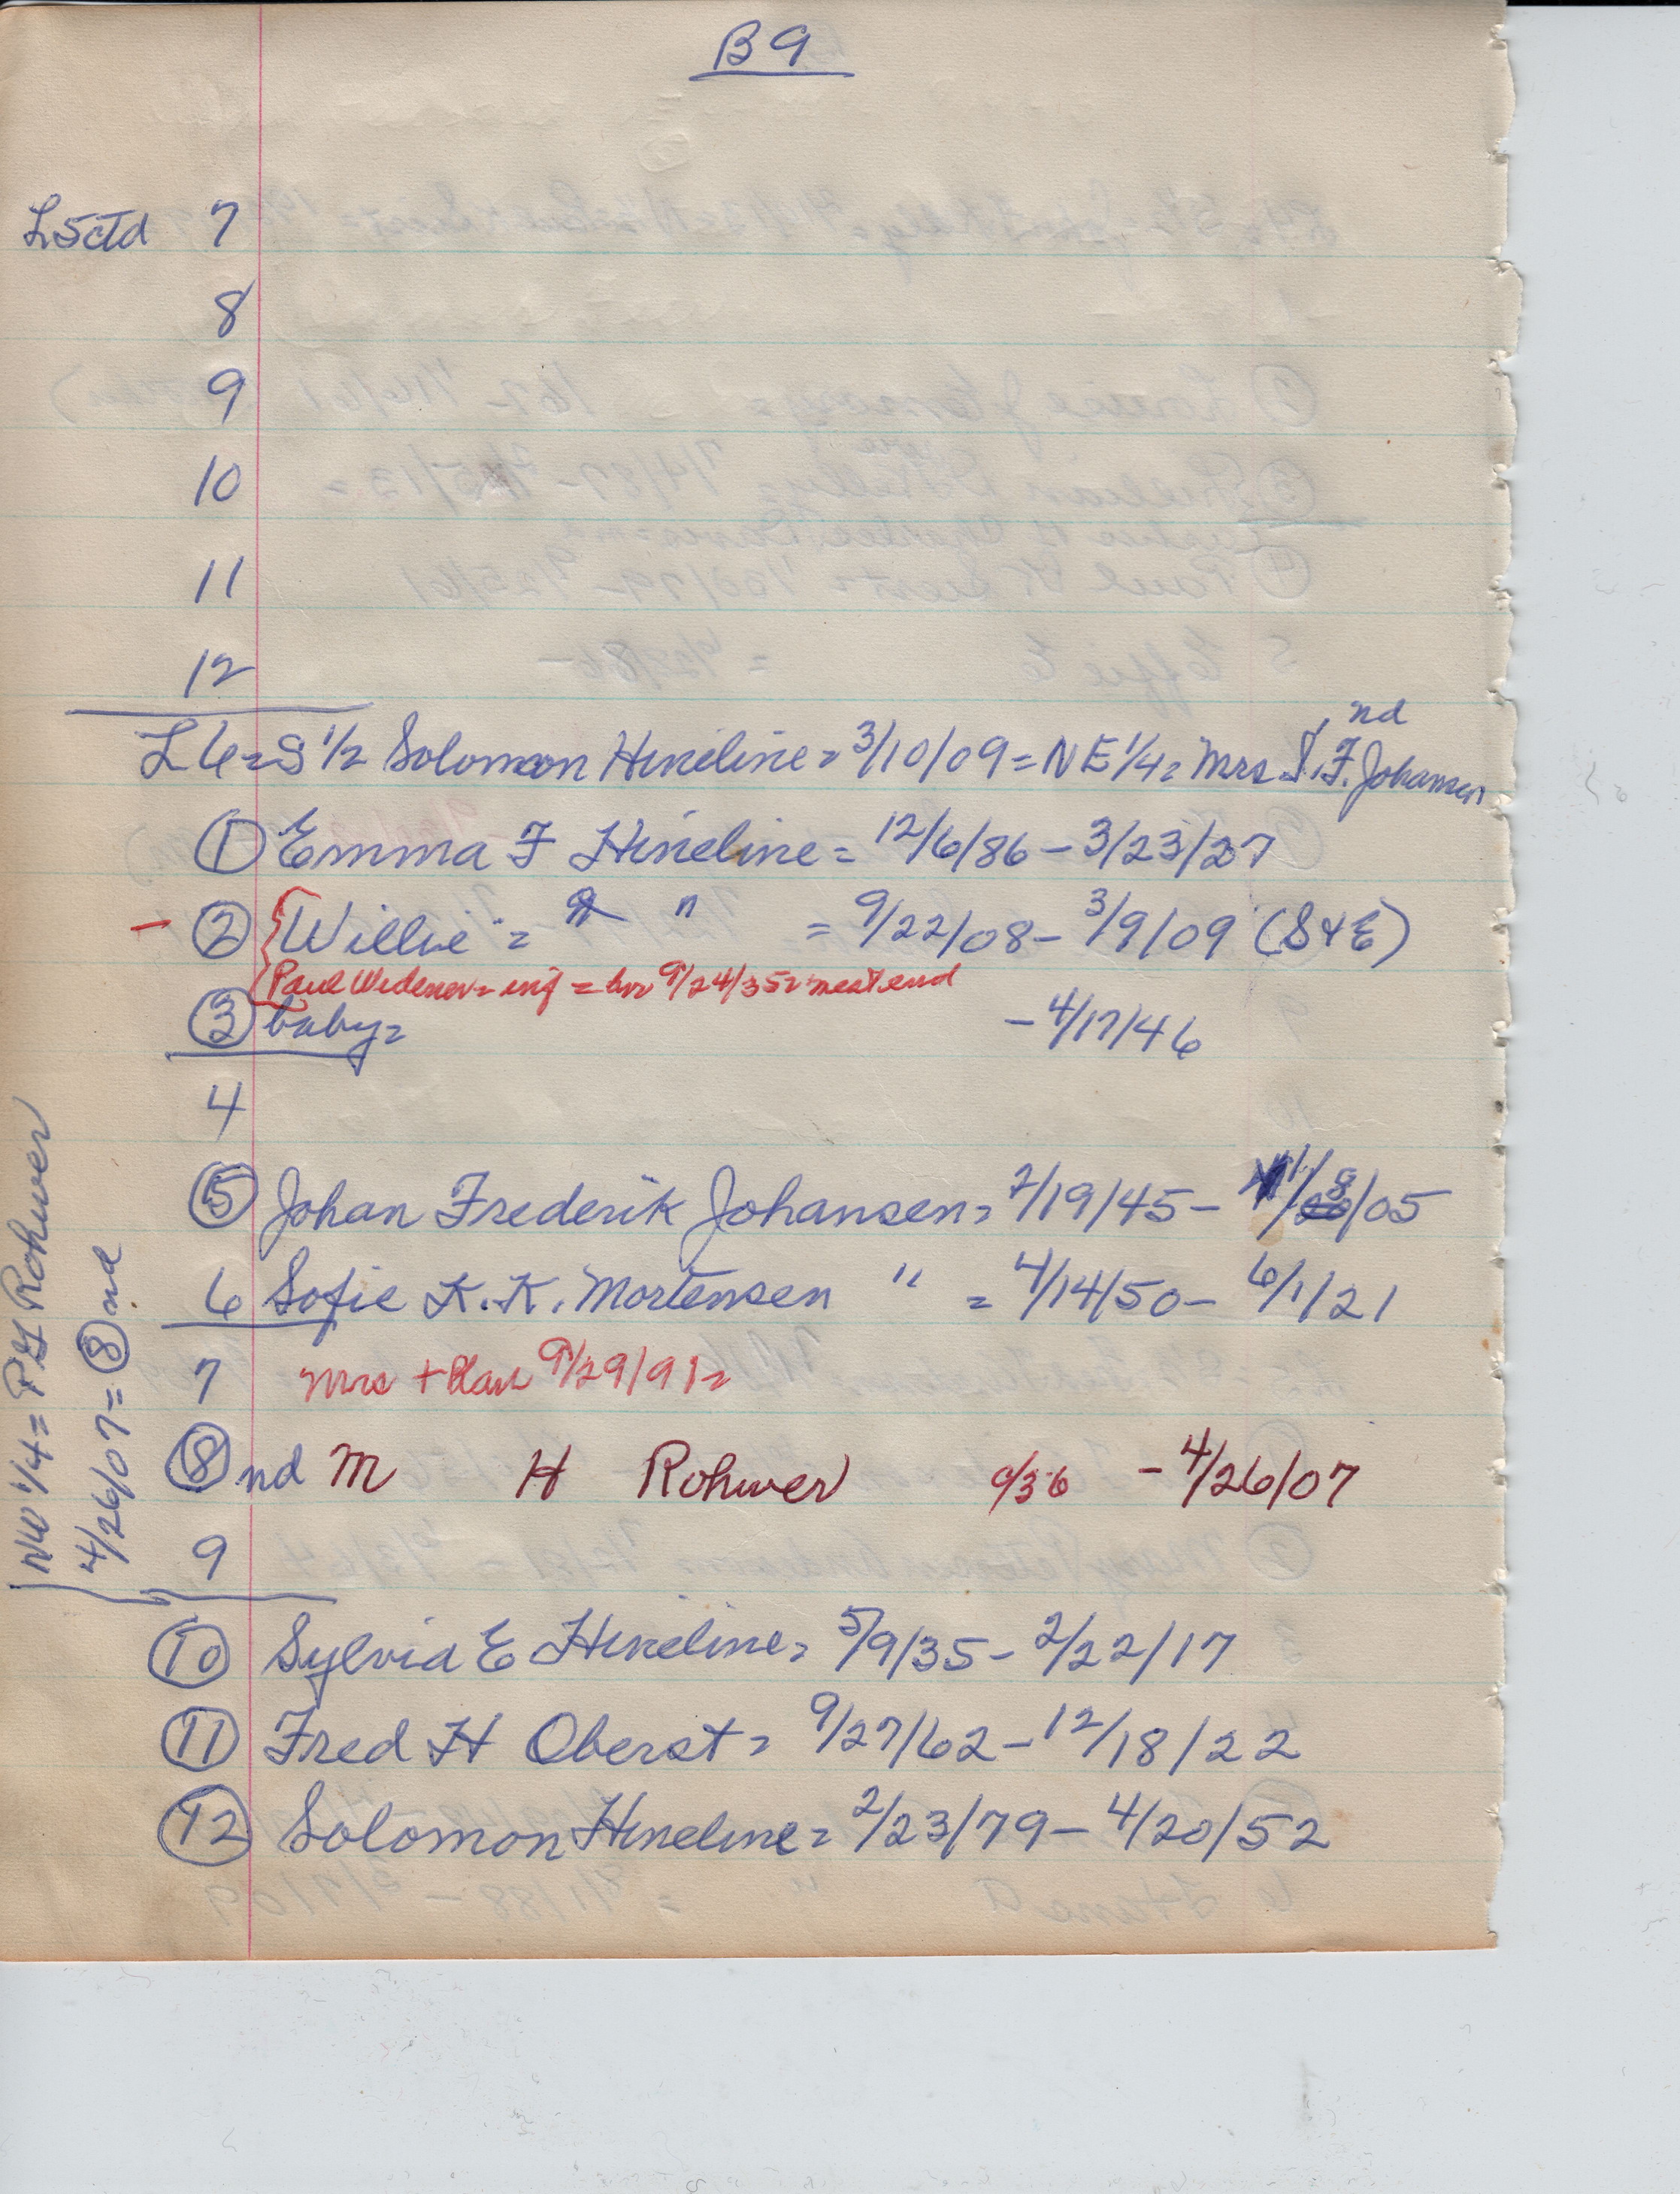 B9
L5ctd 7
8
9
10
11
12
L6=S 1/2 Solomon Hineline = 3/10/09 = NE 1/4 = Mrs J.F. Johansen, nd
① Emma F Hineline = 12/6/86 - 3/23/27
- ② Willie = " = 9/22/08 - 3/9/09 (S+E)
Paul Widener = inf = bur 9/24/35 = west end
③ baby = - 4/17/46
4
⑤ Johan Frederik Johansen = 2/19/45 - 11/8/05
6 Sofie K.K. Mortensen " = 4/14/50 - 6/1/21
7 Mrs + 9/29/91 =
⑧ nd M H Rohwer 9/36 - 4/26/07
9
NW 1/4 = PG Rohwer
4/26/07 = ⑧ nd
⑩ Sylvia E Hineline = 5/9/35 - 2/22/17
⑪ Fred H Oberst = 9/27/62 - 12/18/22
⑫ Solomon Hineline = 2/23/79 - 4/20/52